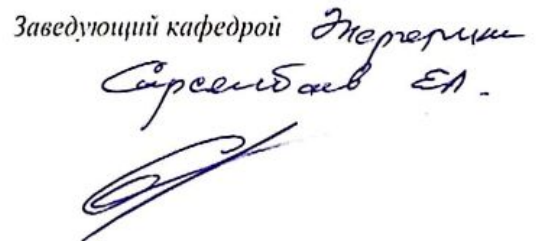 Заведующий кафедрой Энергетики
Сарсембаев ЕА.